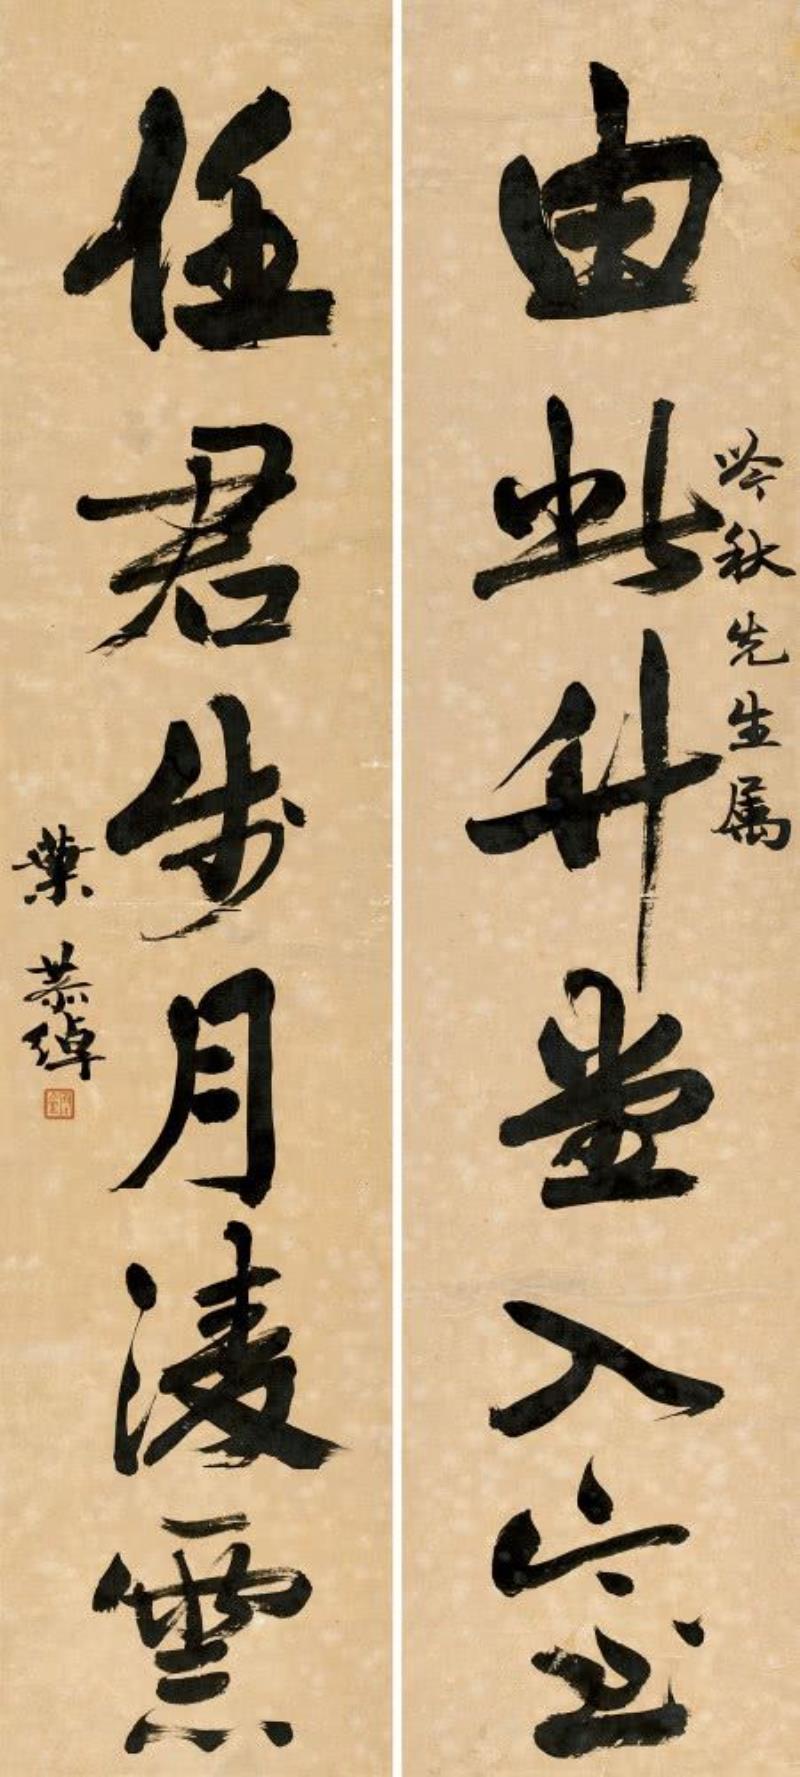 由此升堂入室
吟秋先生属
任君步月凌雲
葉恭綽